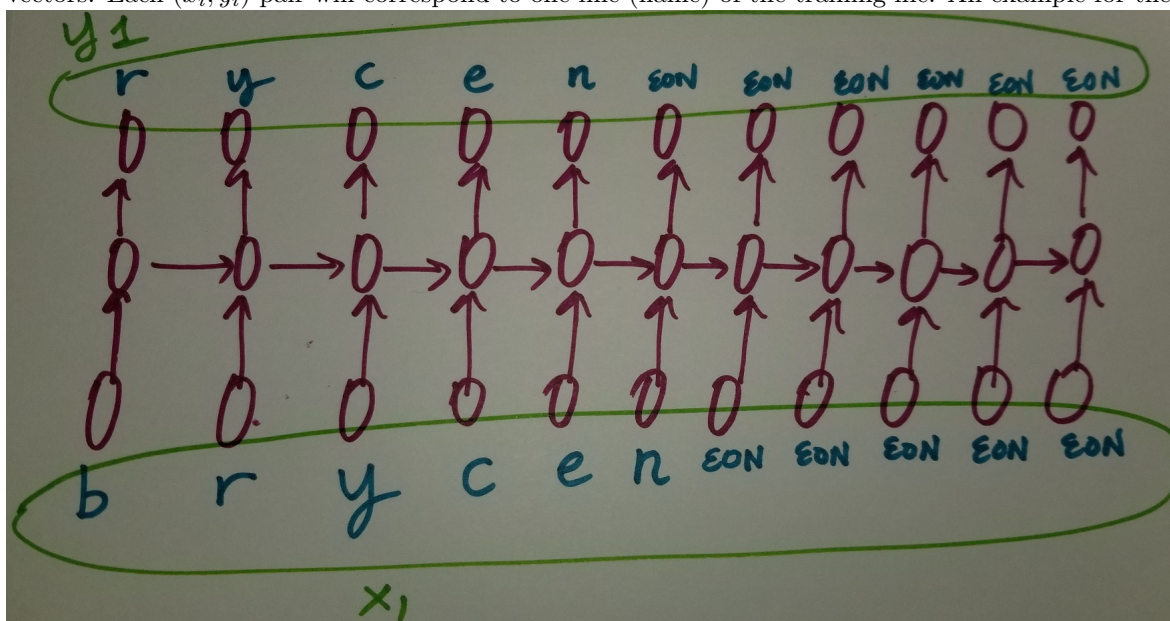 vectors. Each (x_i, y_i) pair will correspond to one line (name) of the training file. An example for the
y1
r y c e n EON EON EON EON EON EON
b r y c e n EON EON EON EON EON
x1